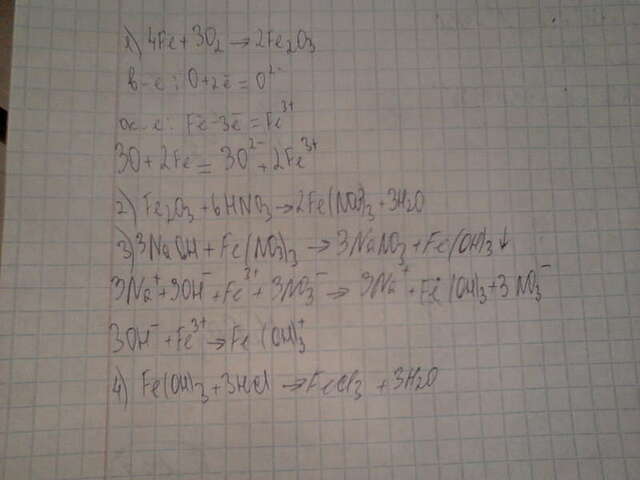 1) 4Fe + 3O₂ → 2Fe₂O₃
в-е: O + 2ē = O²⁻
ок-е: Fe - 3ē = Fe³⁺
3O + 2Fe = 3O²⁻ + 2Fe³⁺
2) Fe₂O₃ + 6HNO₃ → 2Fe(NO₃)₃ + 3H₂O
3) 3NaOH + Fe(NO₃)₃ → 3NaNO₃ + Fe(OH)₃↓
3Na⁺ + 3OH⁻ + Fe³⁺ + 3NO₃⁻ → 3Na⁺ + Fe(OH)₃ + 3NO₃⁻
3OH⁻ + Fe³⁺ → Fe(OH)₃⁺
4) Fe(OH)₃ + 3HCl → FeCl₃ + 3H₂O